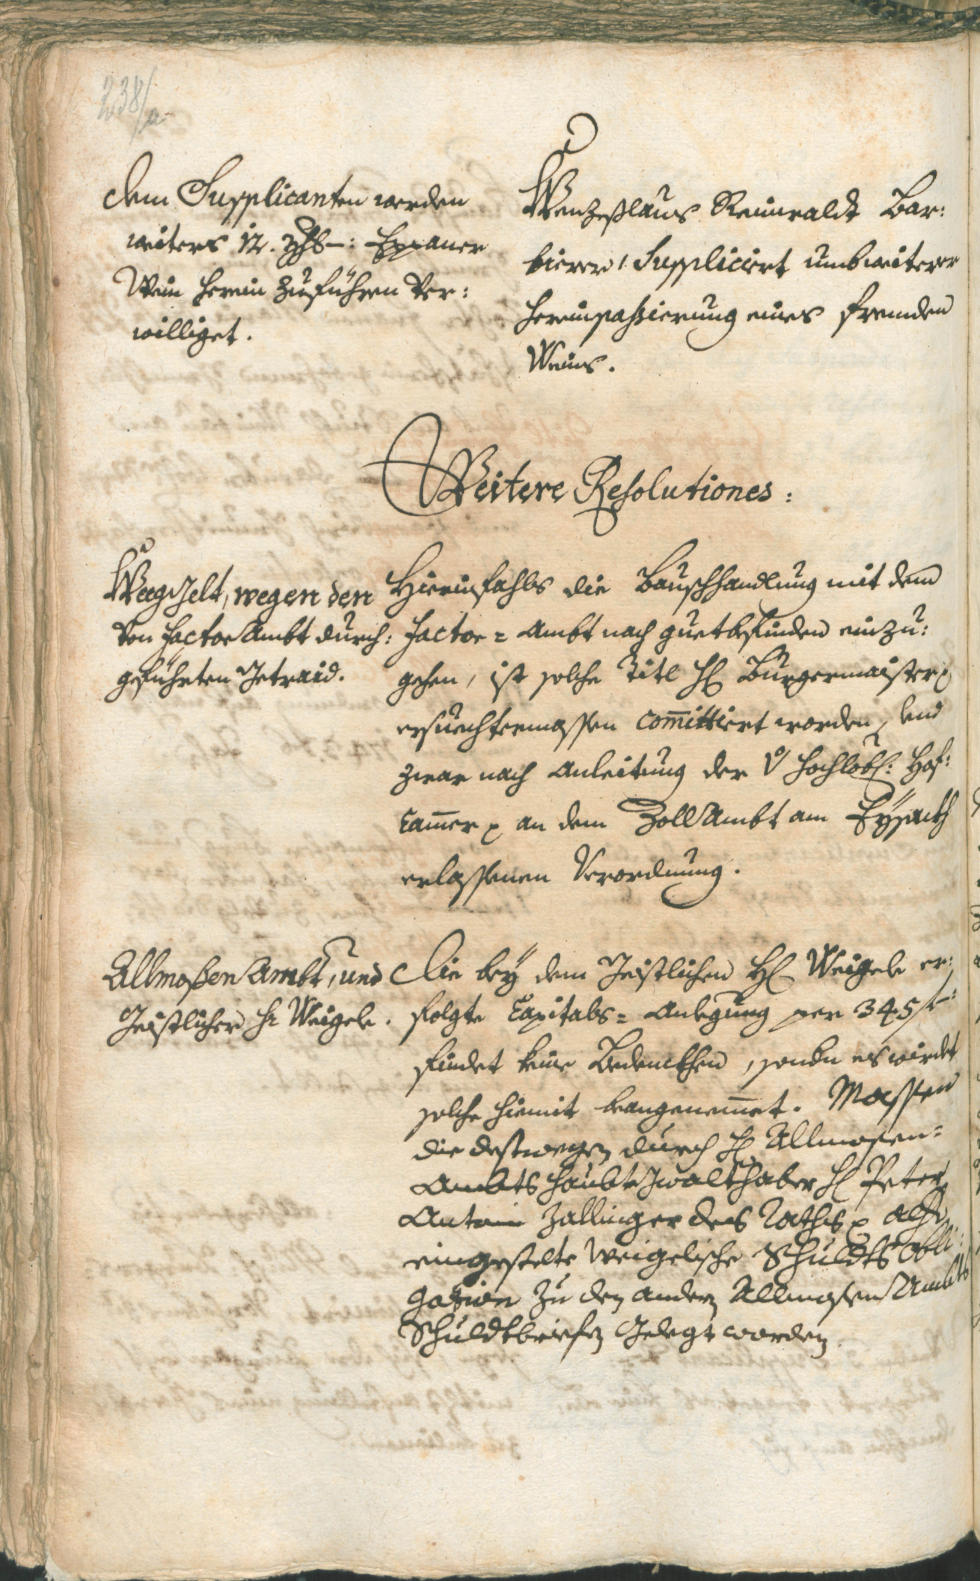 238/a
Dem Supplicanten werden
weiters 12. Yhß: Eppaner
Wein herein zuführen ver:
williget.
Wenzeßlaus Reinwaldt Bar:
bierer, Suppliciert umb weiterer
hereinpahsierung eines frembden
Weins.
Weitere Resolutiones:
Weeggelt, wegen den
von Factor Ambt durch:
geführten Getraid.
Hierinfahls die Bauschhandlung mit dem
Factor= Ambt nach guetbefinden einzu:
gehen, ist solche Titl H: Burgermaister
ersuechtermassen com̄ittiert worden, und
zwar nach Anleitung der V: Hochlobl: Hof:
Cam̄er an dem Zoll Ambt am Eysackh
erlassenen Verordnung.
Allmoßen Ambt, und
Geistlicher H: Weigele.
Die bey dem Geistlichen H: Weigele er:
folgte Capitals= Anlegung per 345 f:
findet keine Bedenckhen, sondern es wirdet
solche hiemit beangenem̄et. Massen
die destwegen durch H: Allmosen=
Ambts haubt Gwalthaber H: Peter
Antoin Zallinger des Raths alhie
eingestelte Weigelische Schuldts Obli:
gation zu den andern Allmosen Ambts
Schuldtbriefen gelegt worden.